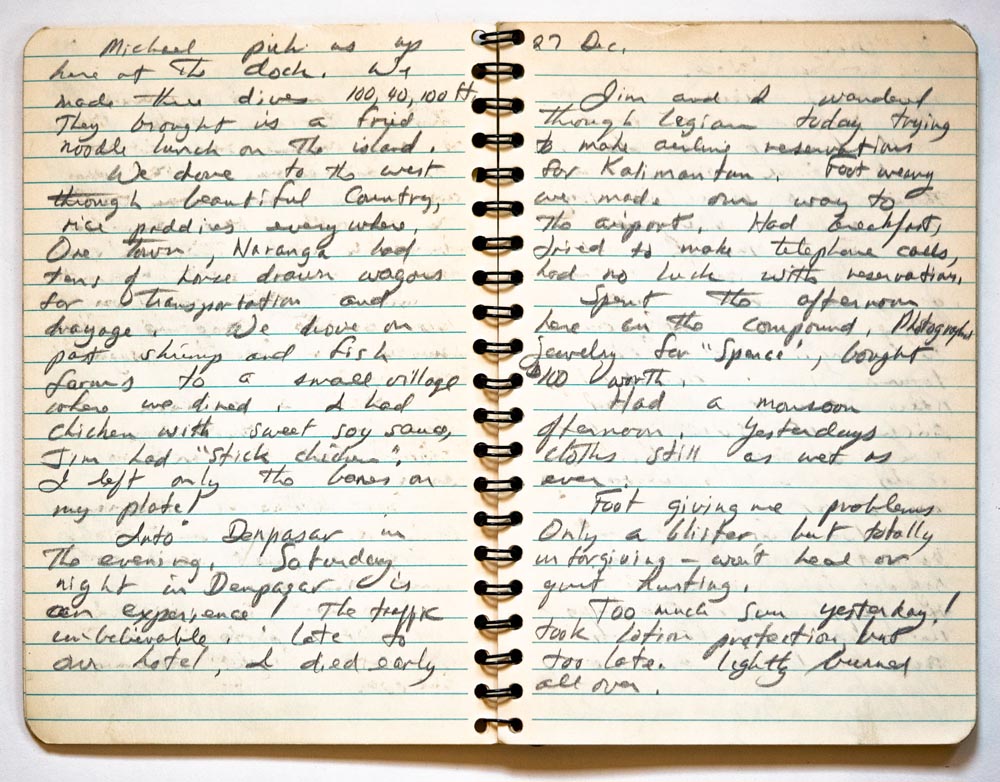 Michael pick us up
here at the dock. We
made three dives 100, 40, 100 ft.
They brought us a fried
noodle lunch on the island.
We drove to the west
through beautiful country,
rice paddies everywhere.
One town, Naranga had
tens of horse drawn wagons
for transportation and
drayage. We drove on
past shrimp and fish
farms to a small village
where we dined. I had
chicken with sweet soy sauce,
Jim had "stick chicken".
I left only the bones on
my plate!
Into Denpasar in
the evening. Saturday
night in Denpasar is
an experience! The traffic
unbelievable. late to
our hotel, I died early
27 Dec.
Jim and I wandered
through Legian today trying
to make airline reservations
for Kalimantan. Foot weary
we made our way to
the airport. Had breakfast,
tried to make telephone calls,
had no luck with reservations.
Spent the afternoon
here in the compound. Photographed
jewelry for "Spence", bought
$100 worth.
Had a monsoon
afternoon. Yesterdays
cloths still as wet as
ever.
Foot giving me problems
Only a blister, but totally
unforgiving - won't heal or
quit hurting.
Too much sun yesterday!
took lotion protection but
too late. lightly burned
all over.